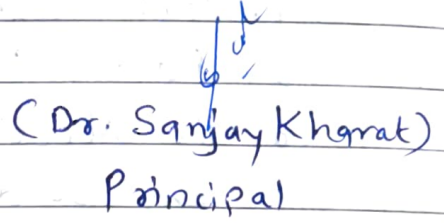 (Dr. Sanjay Kharat)
Principal